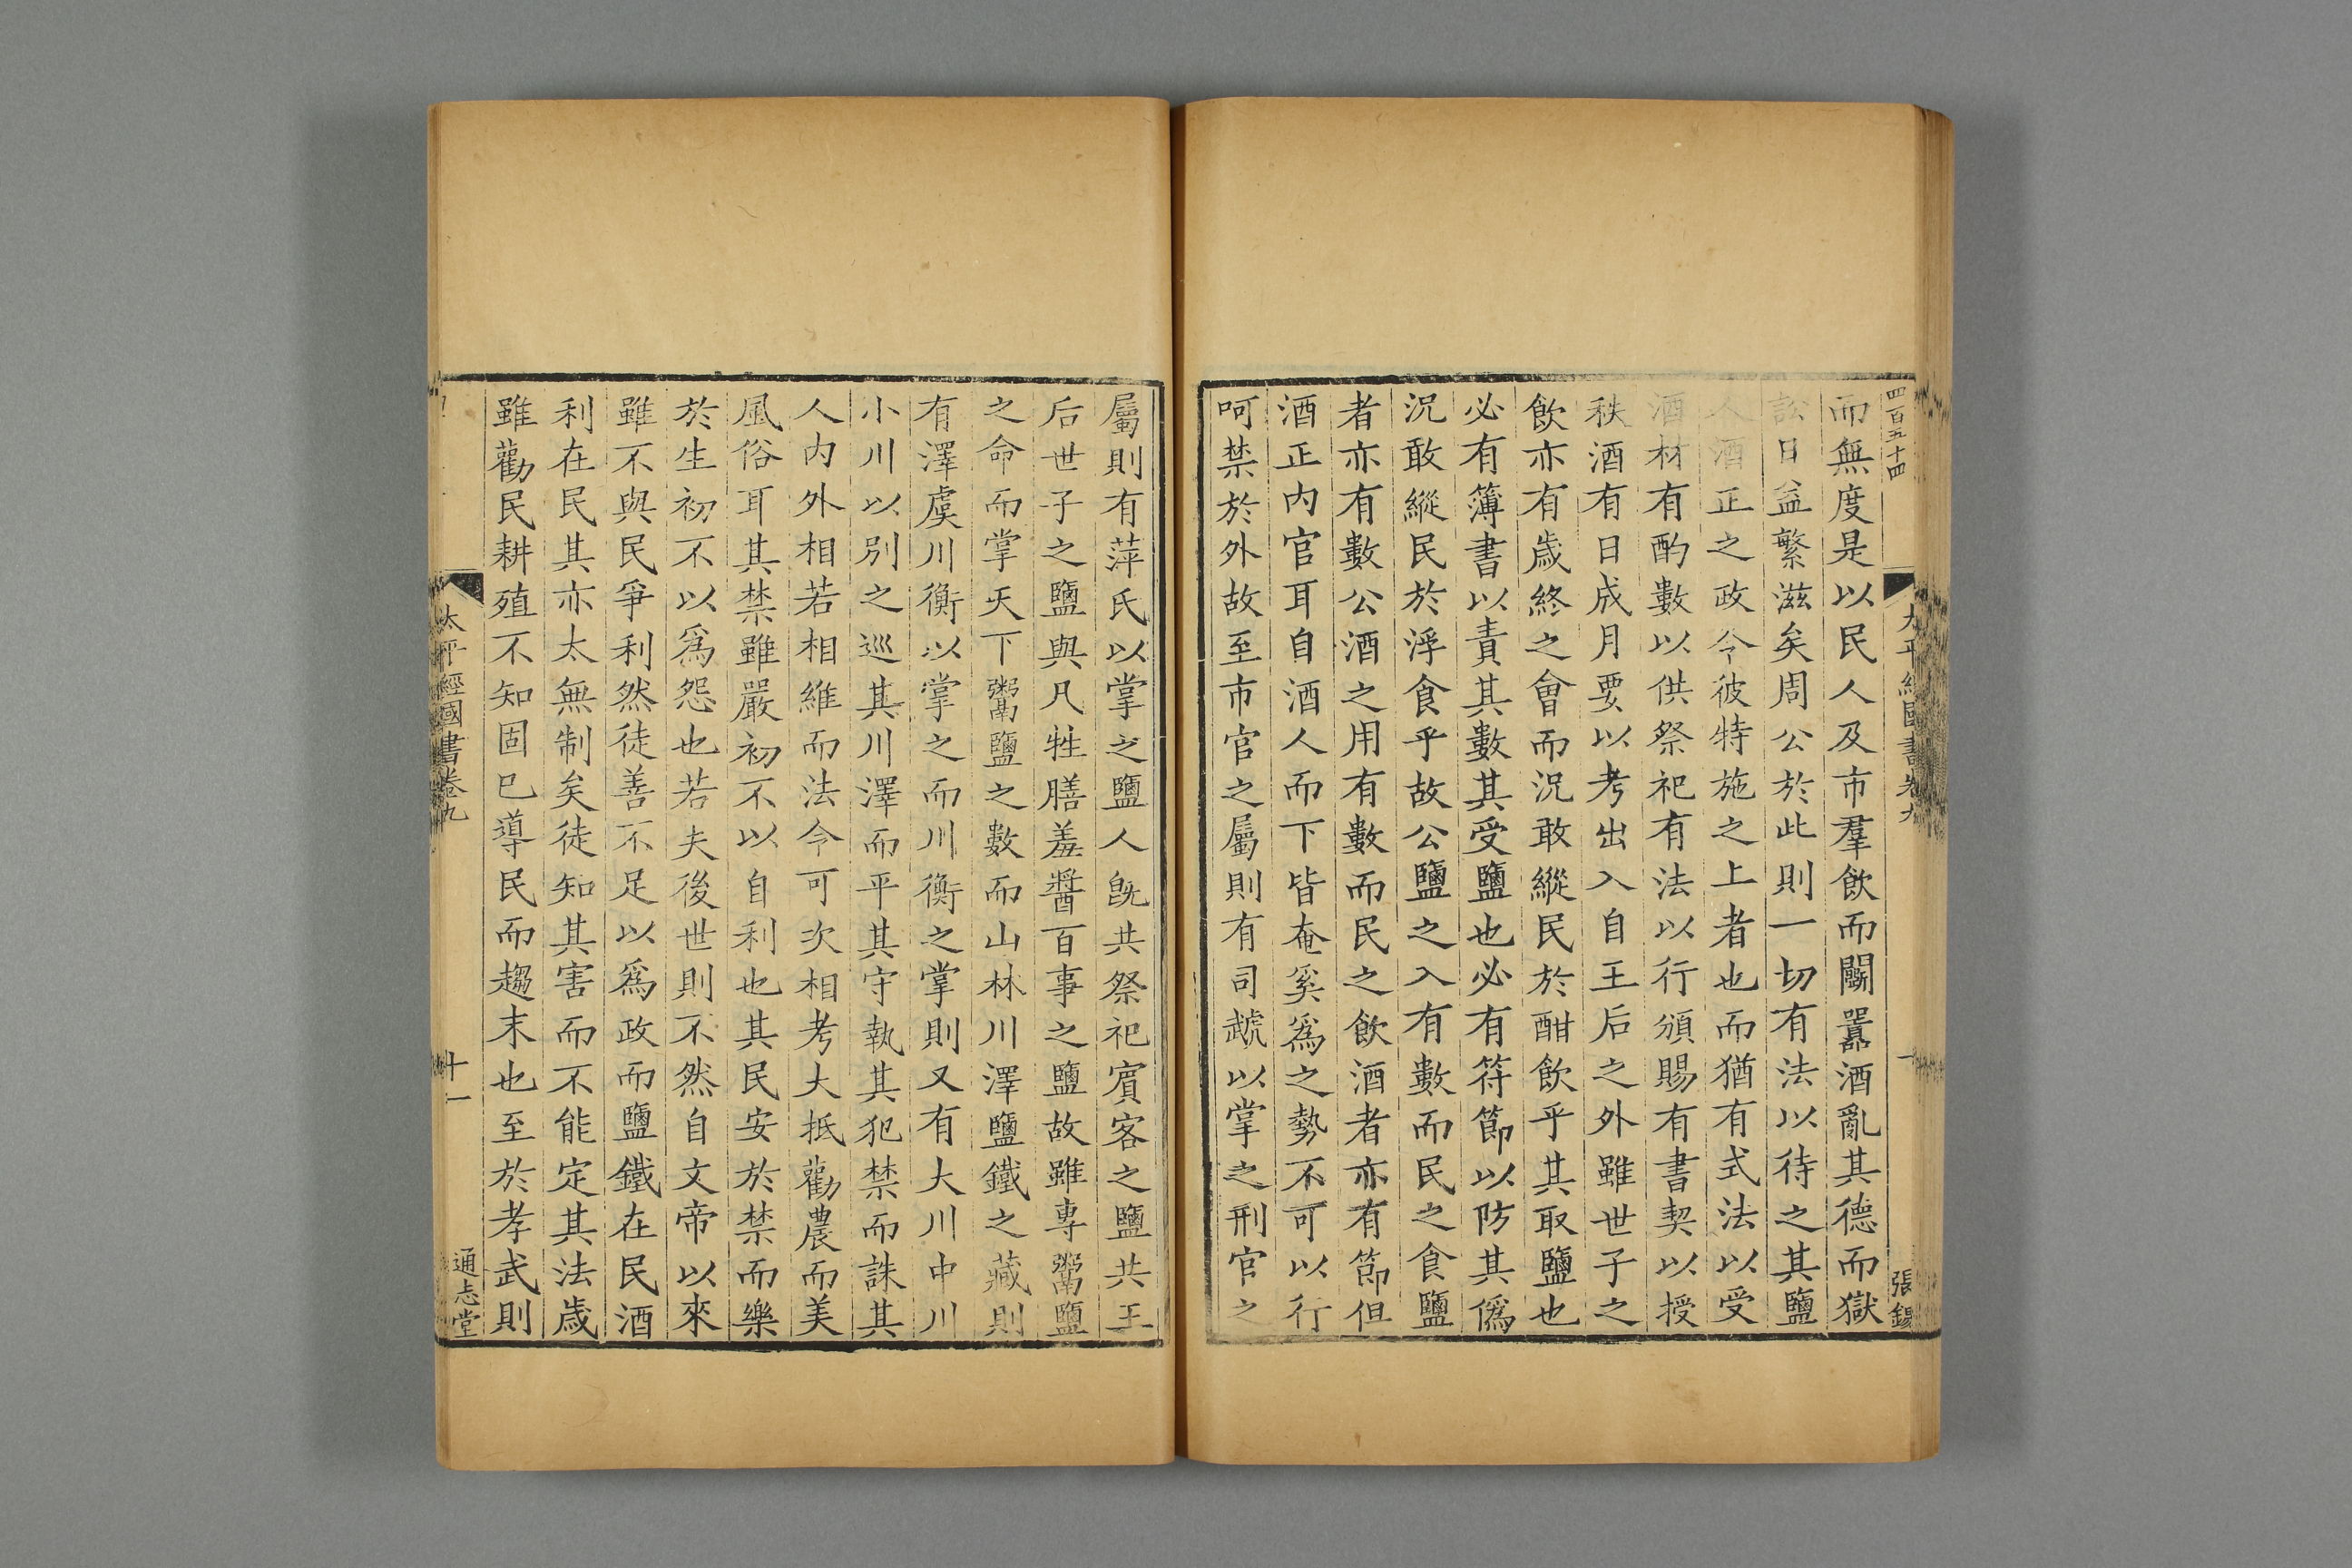 四百五十四
張錫
而無度是以民人及市羣飲而鬭囂酒亂其德而獄
訟日益繁滋矣周公於此則一切有法以待之其鹽
人酒正之政令彼特施之上者也而猶有式法以受
酒材有酌數以供祭祀有法以行頒賜有書契以授
秩酒有日成月要以考出入自王后之外雖世子之
飲亦有歲終之會而況敢縱民於酣飲乎其取鹽也
必有簿書以責其數其受鹽也必有符節以防其僞
況敢縱民於浮食乎故公鹽之入有數而民之食鹽
者亦有數公酒之用有數而民之飲酒者亦有節但
酒正内官耳自酒人而下皆奄奚爲之勢不可以行
呵禁於外故至市官之屬則有司虣以掌之刑官之
屬則有萍氏以掌之鹽人旣共祭祀賓客之鹽共王
后世子之鹽與凡牲膳羞醬百事之鹽故雖專鬻鹽
之命而掌天下鬻鹽之數而山林川澤鹽鐵之藏則
有澤虞川衡以掌之而川衡之掌則又有大川中川
小川以別之巡其川澤而平其守執其犯禁而誅其
人内外相若相維而法令可次相考大抵勸農而美
風俗耳其禁雖嚴初不以自利也其民安於禁而樂
於生初不以爲怨也若夫後世則不然自文帝以來
雖不與民爭利然徒善不足以爲政而鹽鐵在民酒
利在民其亦太無制矣徒知其害而不能定其法歲
雖勸民耕殖不知固已導民而趨末也至於孝武則
太平經國書卷九
十一
通志堂